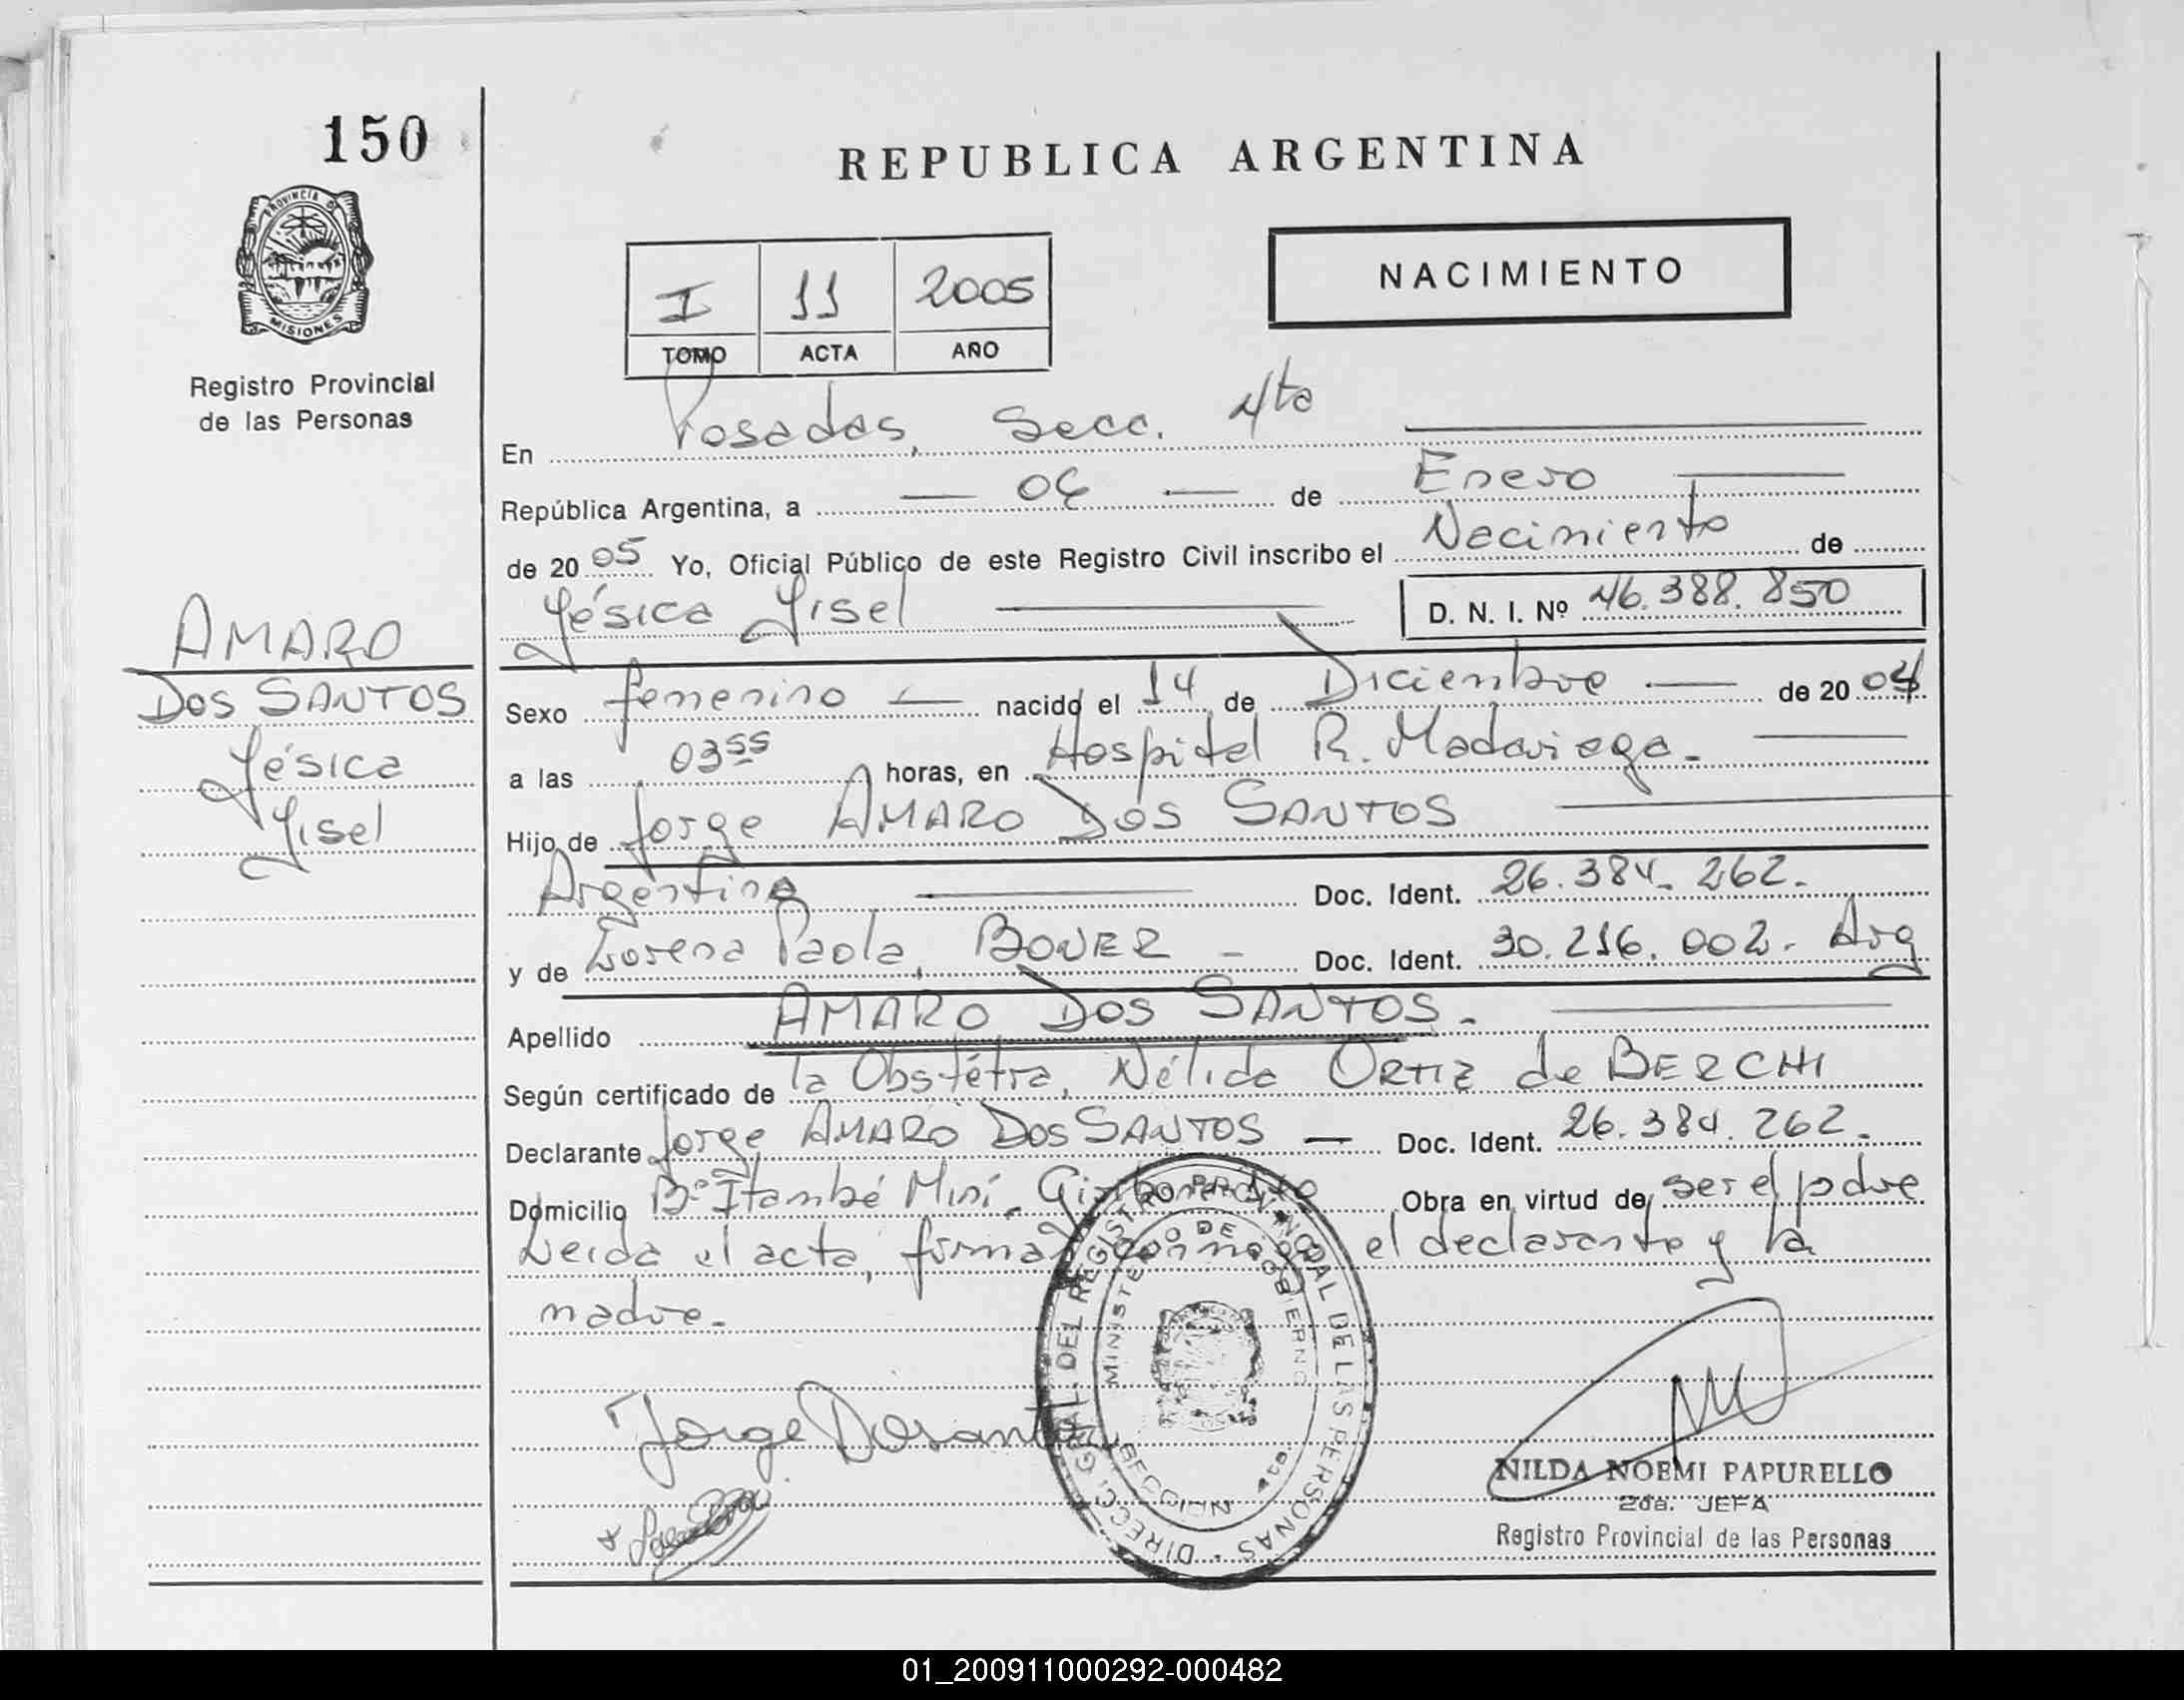 150
REPUBLICA ARGENTINA
PROVINCIA D
MISIONES
Registro Provincial
de las Personas
I 11 2005
TOMO ACTA AÑO
NACIMIENTO
En Posadas, Secc. 4ta
República Argentina, a — 04 — de Enero
de 2005 Yo, Oficial Público de este Registro Civil inscribo el Nacimiento de
Yésica Yisel D. N. I. Nº 46.388.850
AMARO
DOS SANTOS
Yésica
Yisel
Sexo femenino — nacido el 14 de Diciembre — de 2004
a las 03 55 horas, en Hospital R. Madariaga.
Hijo de Jorge AMARO DOS SANTOS
Argentina Doc. Ident. 26.384.262.
y de Lorena Paola, BOVER - Doc. Ident. 30.216.002. Arg
Apellido AMARO DOS SANTOS.
Según certificado de la Obstétra, Nélida ORTIZ de BERCHI
Declarante Jorge AMARO DOS SANTOS — Doc. Ident. 26.384.262.
Domicilio Bº Itambé Miní. Obra en virtud de ser el padre
Leida el acta, firman el declarante y la
madre.
DIRECC. GRAL. DEL REGISTRO PROVINCIAL DE LAS PERSONAS
MINISTERIO DE GOBIERNO
SECCION 4ta.
Jorge Dosantos
NILDA NOEMI PAPURELLO
2da. JEFA
Registro Provincial de las Personas
01_200911000292-000482